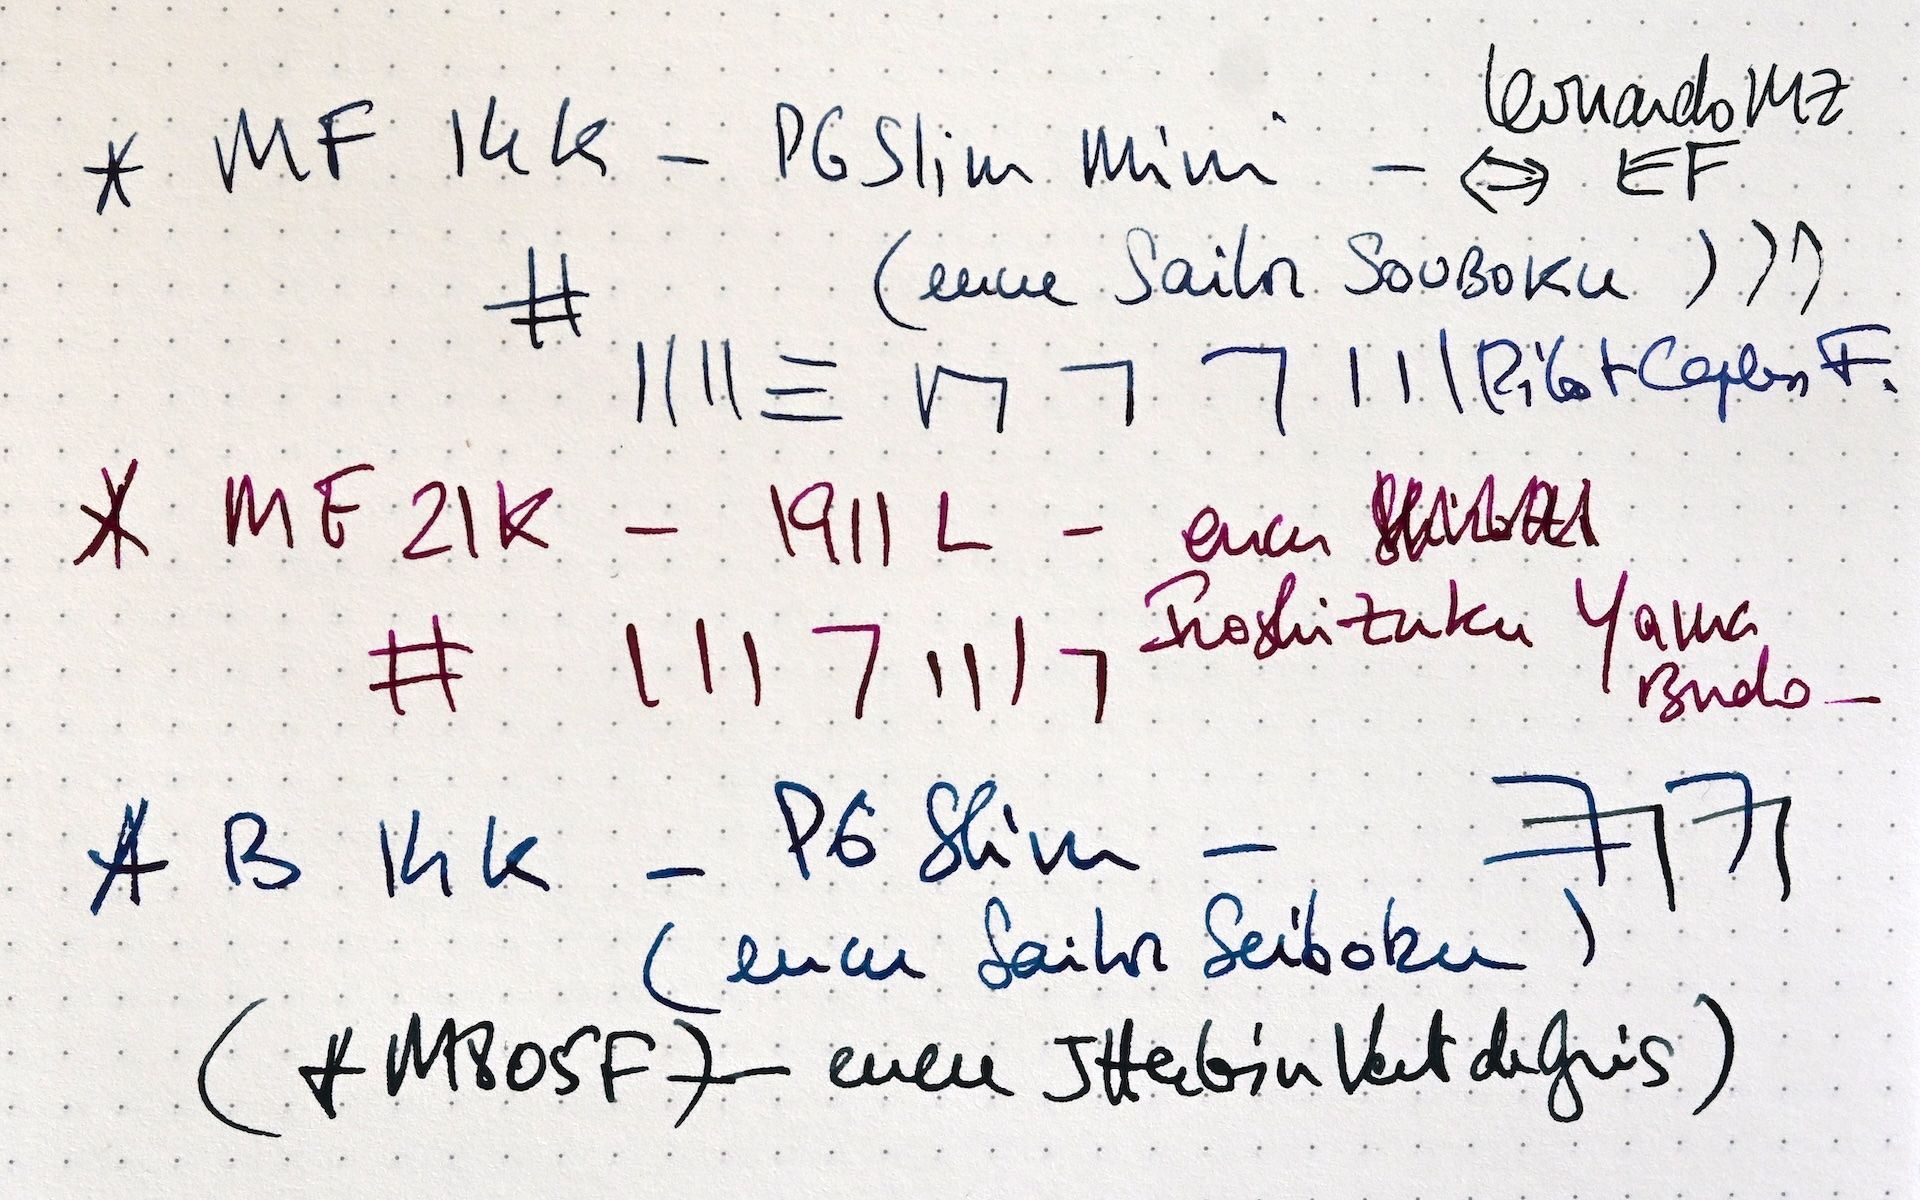 Leonardo MZ
* MF 14K - PG Slim Mini - ⇔ EF
# (encre Sailor SOUBOKU)
Pilot Capless F.
* MF 21K - 1911 L - encre
# Iroshizuku Yama
Budo -
* B 14K - PG Slim -
(encre Sailor Seiboku)
(* M805F) - encre JHerbin Vert de Gris)